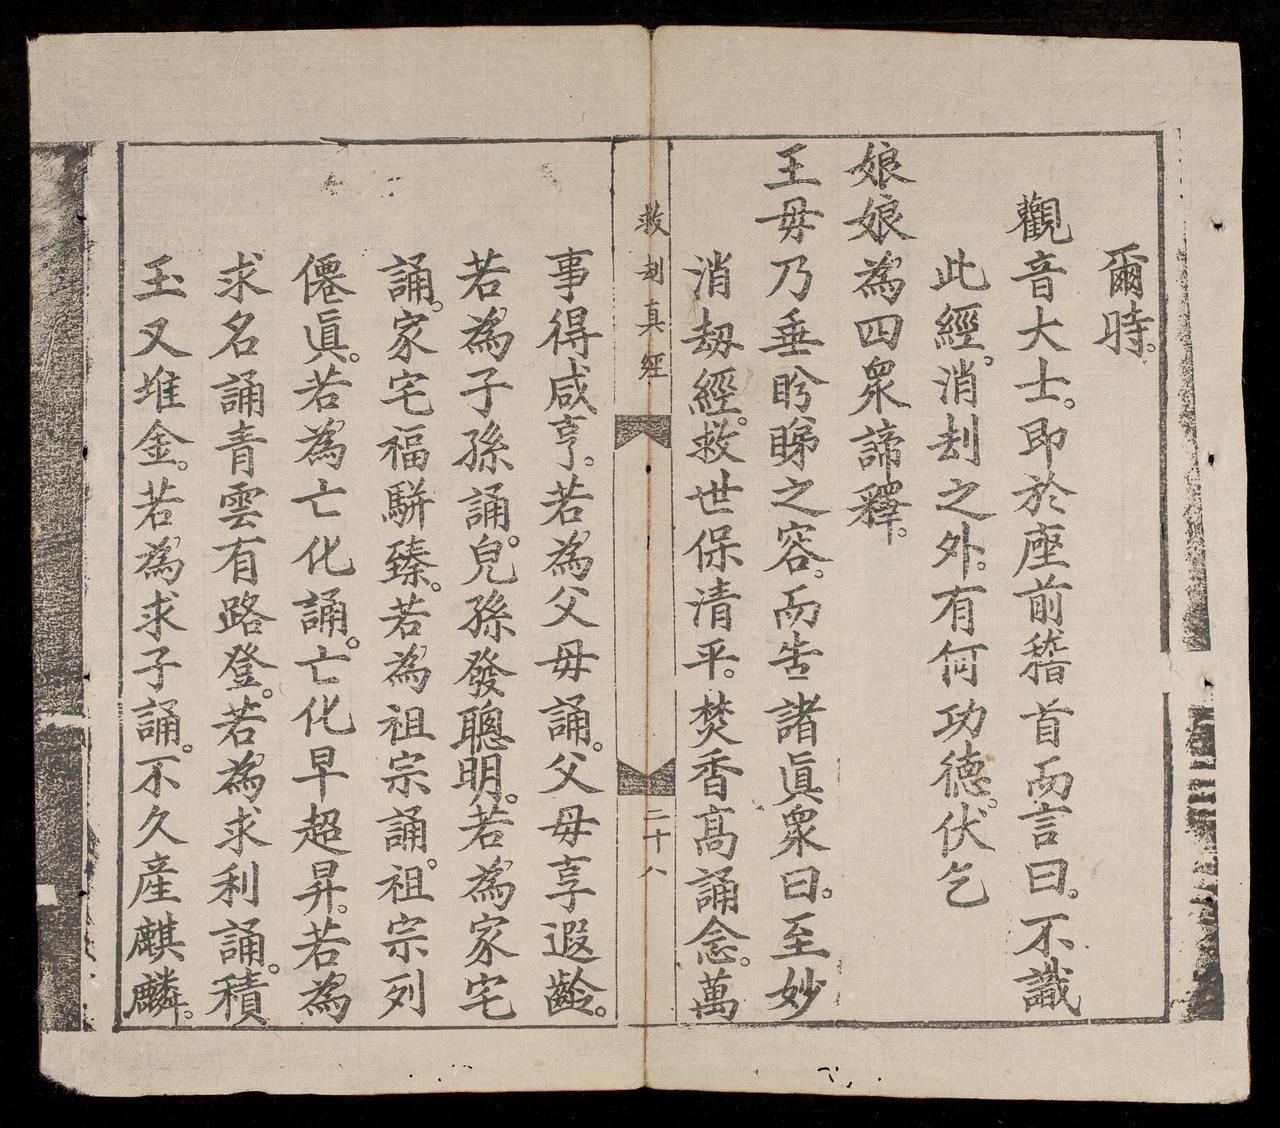 爾時。
觀音大士。即於座前稽首而言曰。不識
此經。消刦之外。有何功德。伏乞
娘娘為四衆諦釋。
王母乃垂盻睇之容。而告諸眞衆曰。至妙
消劫經。救世保清平。焚香高誦念。萬
救刦真經
二十八
事得咸亨。若為父母誦。父母享遐齡。
若為子孫誦。兒孫發聰明。若為家宅
誦。家宅福駢臻。若為祖宗誦。祖宗列
僊眞。若為亡化誦。亡化早超昇。若為
求名誦青雲有路登。若為求利誦。積
玉又堆金。若為求子誦。不久產麒麟。